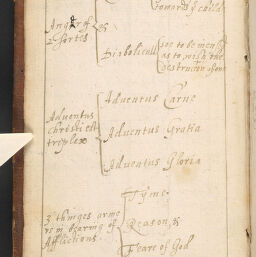 towards ye child
Anger of
2 sortes
Diabolicall
soe to be mensh
as to wish the
destruction of one
Adventus
Christi est
triplex
Adventus Carne
Adventus Gratia
Adventus Gloria
3 thinges arme
us in bearing of
Afflictions
Tyme
Reason, &
Feare of God